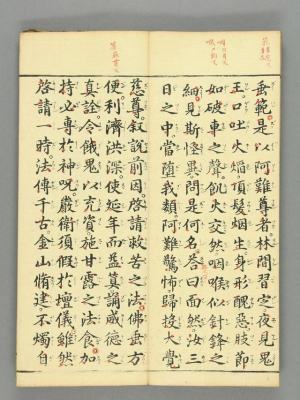 垂範是以阿難尊者林間習定夜見鬼
王口吐火焰頂髮烟生身形醜惡肢節
如破車之聲飢火交然咽喉似針鋒之
細見斯怪異問是何名荅曰面然汝三
日之中當墮我類阿難驚怖歸投大覺
慈尊叙說前因啓請救苦之法佛垂方
便利濟洪深使延年而益筭誦威德之
真詮令餓鬼以充資施甘露之法食加
持必專於神呪嚴衛須假於壇儀雖然
啓請一時法傳千古金山脩建不燭自